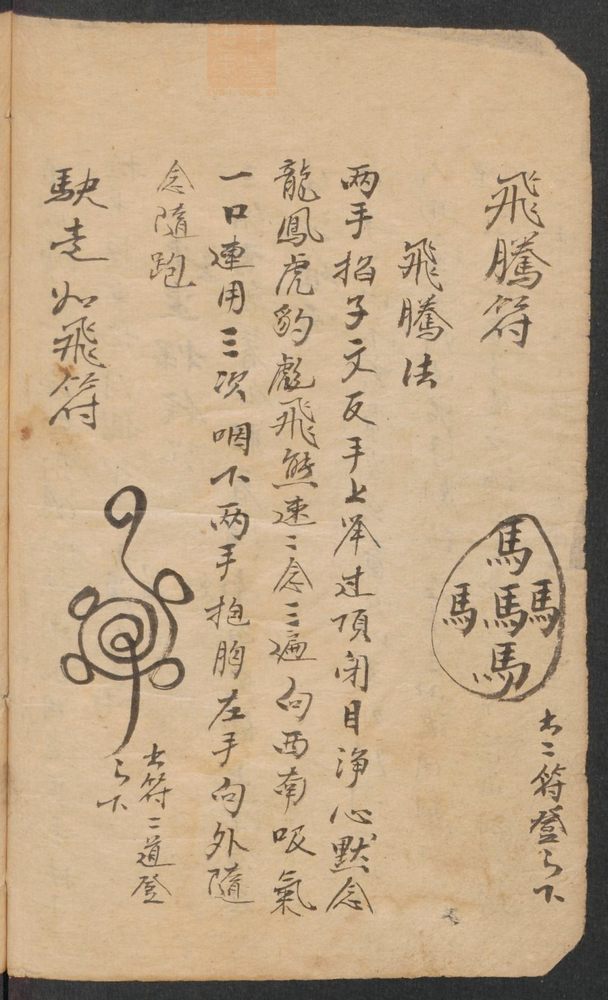 飛騰符
馬
馬馬馬
馬
二符登下
飛騰法
两手掐子文反手上举过頂闭目淨心默念
龍鳳虎豹彪飛熊速二念三遍向西南吸氣
一口連用三次咽下两手抱胸左手向外隨
念隨跑
駃走如飛符
符二道登
下